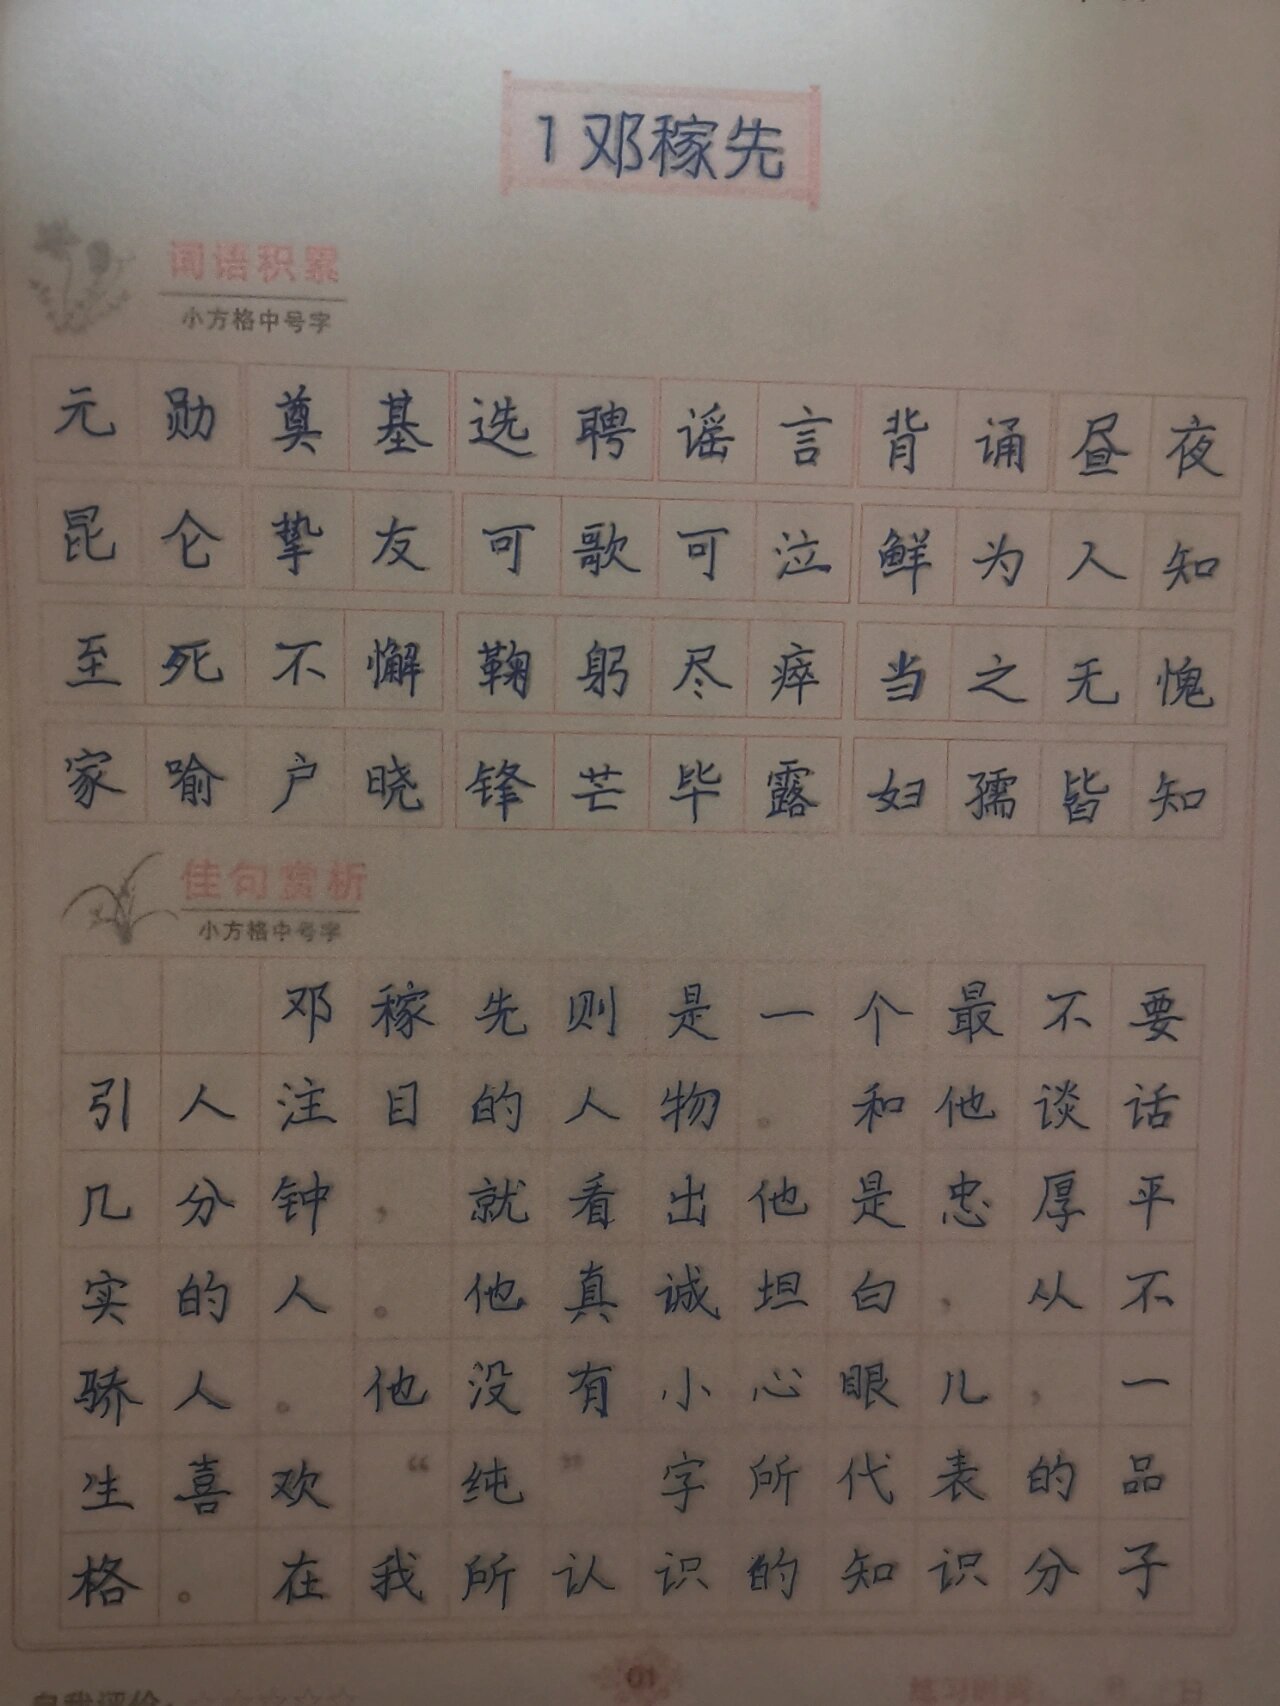 1邓稼先
词语积累
小方格中号字
元勋 奠基 选聘 谣言 背诵 昼夜
昆仑 挚友 可歌可泣 鲜为人知
至死不懈 鞠躬尽瘁 当之无愧
家喻户晓 锋芒毕露 妇孺皆知
佳句赏析
小方格中号字
邓稼先则是一个最不要
引人注目的人物。和他谈话
几分钟，就看出他是忠厚平
实的人。他真诚坦白，从不
骄人。他没有小心眼儿，一
生喜欢“纯”字所代表的品
格。在我所认识的知识分子
01
自我评价：☆☆☆☆☆